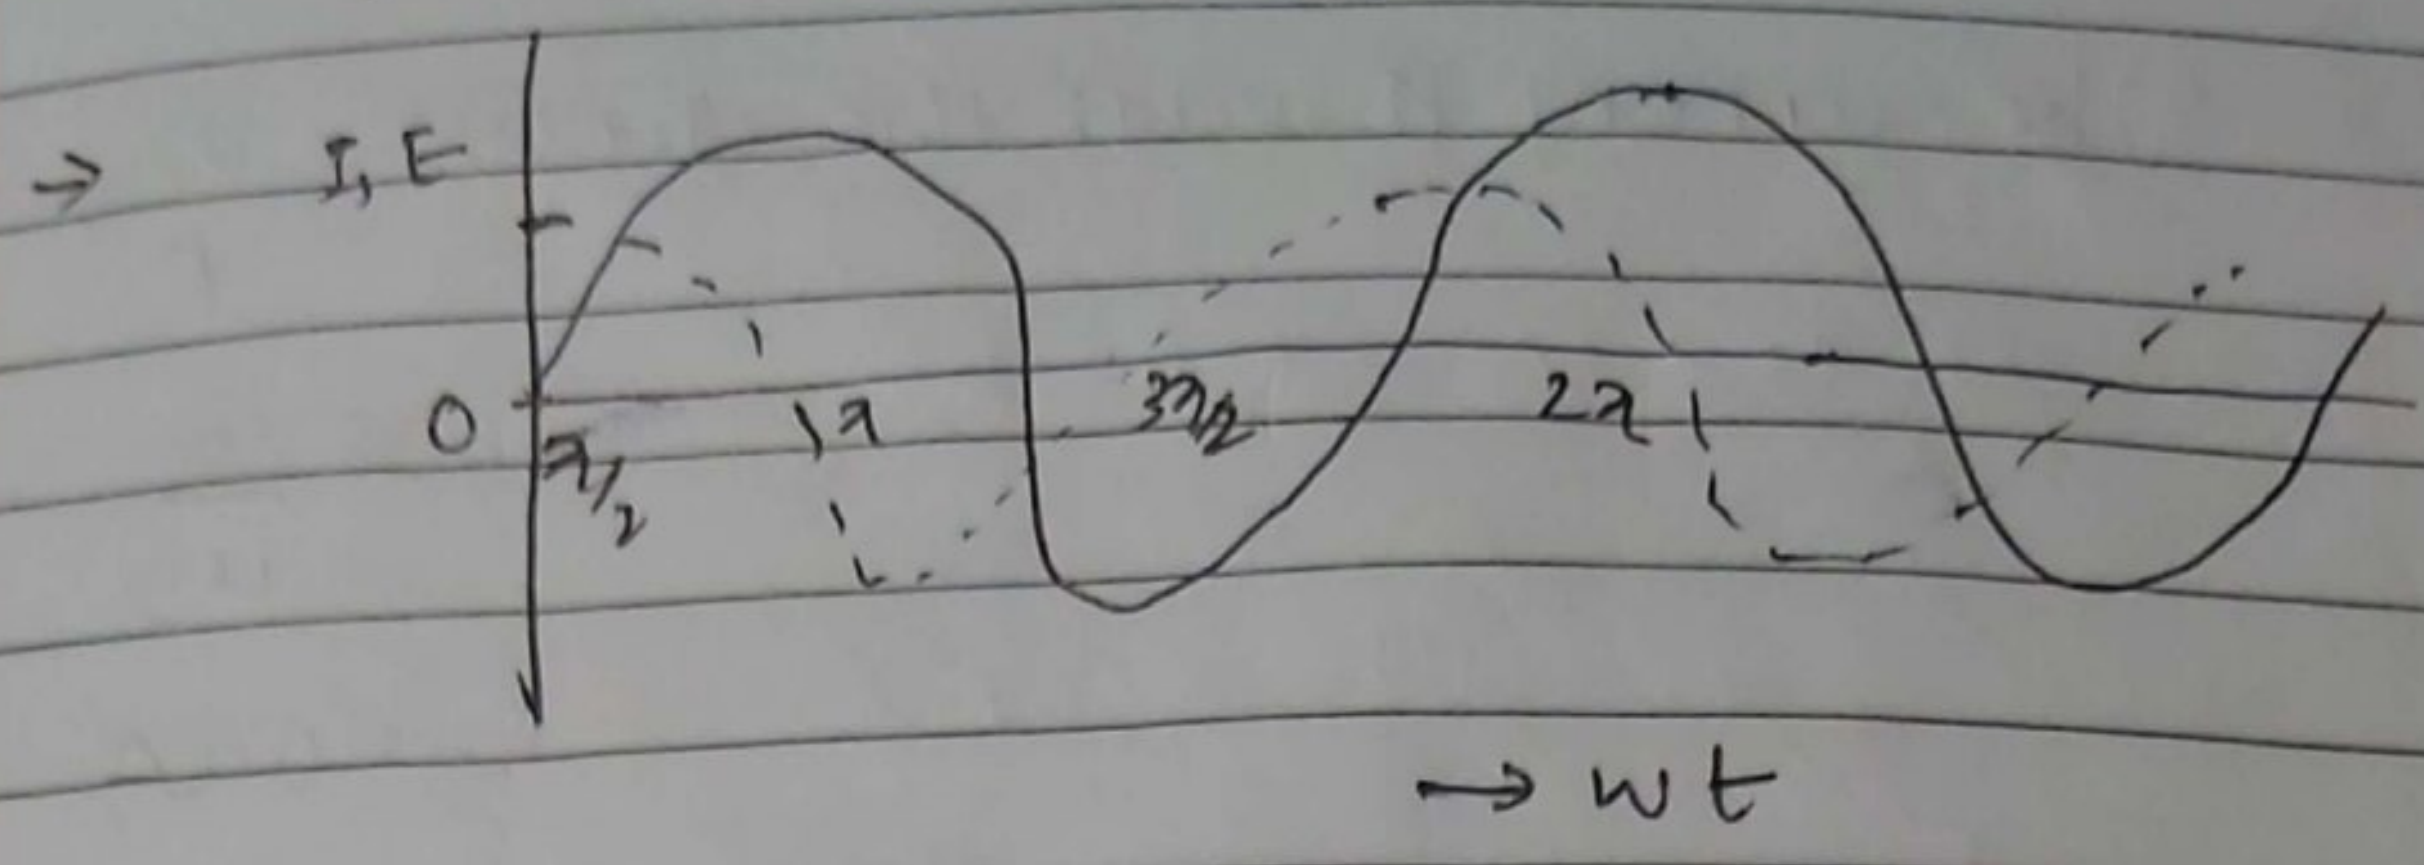 → I, E
0 π/2 π 3π/2 2π
→ wt